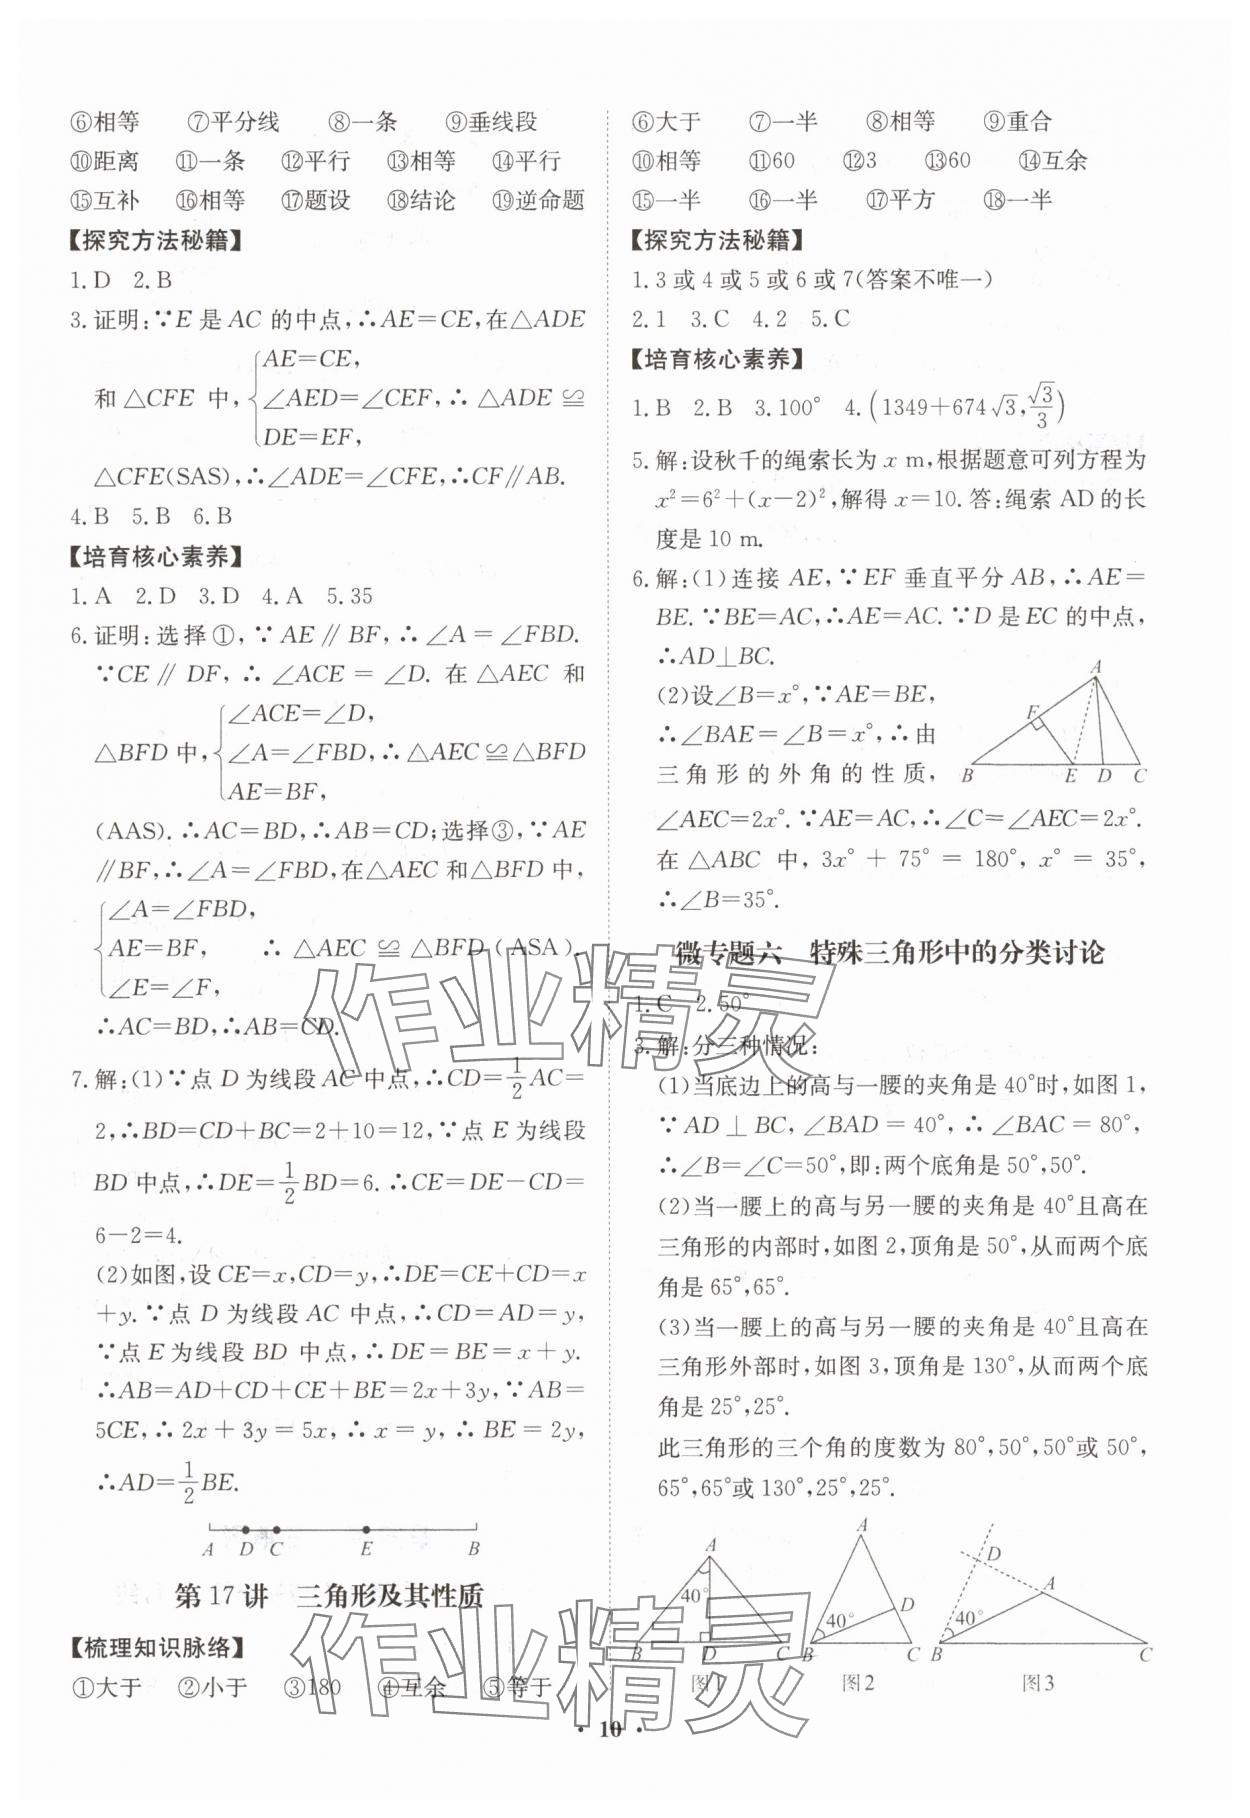 ⑥相等 ⑦平分线 ⑧一条 ⑨垂线段
⑩距离 ⑪一条 ⑫平行 ⑬相等 ⑭平行
⑮互补 ⑯相等 ⑰题设 ⑱结论 ⑲逆命题
【探究方法秘籍】
1.D 2.B
3.证明:∵E是AC的中点,∴AE=CE,在△ADE
和△CFE中,{AE=CE,
∠AED=∠CEF,∴△ADE≌
DE=EF,
△CFE(SAS),∴∠ADE=∠CFE,∴CF∥AB.
4.B 5.B 6.B
【培育核心素养】
1.A 2.D 3.D 4.A 5.35
6.证明:选择①,∵AE∥BF,∴∠A=∠FBD.
∵CE∥DF,∴∠ACE=∠D.在△AEC和
△BFD中,{∠ACE=∠D,
∠A=∠FBD,∴△AEC≌△BFD
AE=BF,
(AAS).∴AC=BD,∴AB=CD;选择③,∵AE
∥BF,∴∠A=∠FBD,在△AEC和△BFD中,
{∠A=∠FBD,
AE=BF, ∴△AEC≌△BFD(ASA),
∠E=∠F,
∴AC=BD,∴AB=CD.
7.解:(1)∵点D为线段AC中点,∴CD=1/2AC=
2,∴BD=CD+BC=2+10=12,∵点E为线段
BD中点,∴DE=1/2BD=6.∴CE=DE-CD=
6-2=4.
(2)如图,设CE=x,CD=y,∴DE=CE+CD=x
+y.∵点D为线段AC中点,∴CD=AD=y,
∵点E为线段BD中点,∴DE=BE=x+y.
∴AB=AD+CD+CE+BE=2x+3y,∵AB=
5CE,∴2x+3y=5x,∴x=y,∴BE=2y,
∴AD=1/2BE.
A D C E B
第17讲 三角形及其性质
【梳理知识脉络】
①大于 ②小于 ③180 ④互余 ⑤等于
⑥大于 ⑦一半 ⑧相等 ⑨重合
⑩相等 ⑪60 ⑫3 ⑬60 ⑭互余
⑮一半 ⑯一半 ⑰平方 ⑱一半
【探究方法秘籍】
1.3或4或5或6或7(答案不唯一)
2.1 3.C 4.2 5.C
【培育核心素养】
1.B 2.B 3.100° 4.(1349+674√3,√3/3)
5.解:设秋千的绳索长为x m,根据题意可列方程为
x²=6²+(x-2)²,解得x=10.答:绳索AD的长
度是10 m.
6.解:(1)连接AE,∵EF垂直平分AB,∴AE=
BE.∵BE=AC,∴AE=AC.∵D是EC的中点,
∴AD⊥BC.
(2)设∠B=x°,∵AE=BE,
∴∠BAE=∠B=x°,∴由
三角形的外角的性质,
A F B E D C
∠AEC=2x°.∵AE=AC,∴∠C=∠AEC=2x°.
在△ABC中,3x°+75°=180°,x°=35°,
∴∠B=35°.
微专题六 特殊三角形中的分类讨论
1.C 2.50°
3.解:分三种情况:
(1)当底边上的高与一腰的夹角是40°时,如图1,
∵AD⊥BC,∠BAD=40°,∴∠BAC=80°,
∴∠B=∠C=50°,即:两个底角是50°,50°.
(2)当一腰上的高与另一腰的夹角是40°且高在
三角形的内部时,如图2,顶角是50°,从而两个底
角是65°,65°.
(3)当一腰上的高与另一腰的夹角是40°且高在
三角形外部时,如图3,顶角是130°,从而两个底
角是25°,25°.
此三角形的三个角的度数为80°,50°,50°或50°,
65°,65°或130°,25°,25°.
A 40° B D C 图1
A 40° D B C 图2
D A 40° B C 图3
作业精灵
作业精灵
· 10 ·